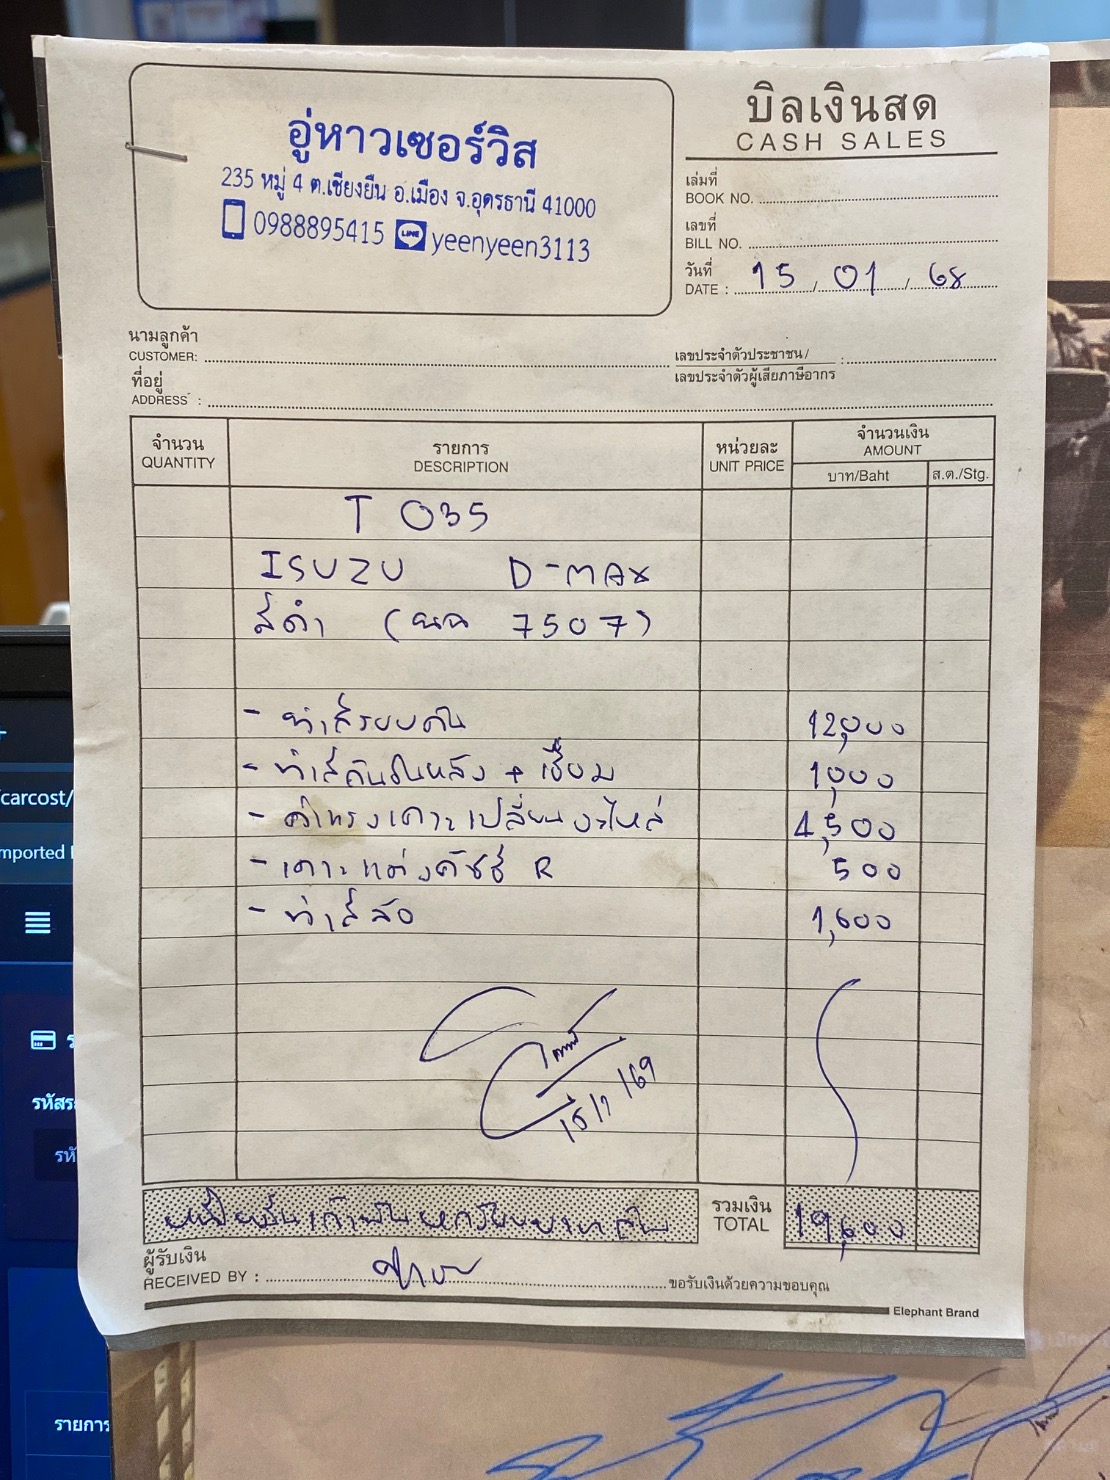 อู่หาวเซอร์วิส
235 หมู่ 4 ต.เชียงยืน อ.เมือง จ.อุดรธานี 41000
0988895415 LINE yeenyeen3113
บิลเงินสด
CASH SALES
เล่มที่
BOOK NO.
เลขที่
BILL NO.
วันที่
DATE : 15 / 01 / 68
นามลูกค้า
CUSTOMER:
เลขประจำตัวประชาชน/ :
เลขประจำตัวผู้เสียภาษีอากร
ที่อยู่
ADDRESS :
จำนวน รายการ หน่วยละ จำนวนเงิน
QUANTITY DESCRIPTION UNIT PRICE AMOUNT
บาท/Baht ส.ต./Stg.
T 035
ISUZU D-MAX
สีดำ ( 7507)
- ทำสีรอบคัน 12,000
- ทำสีกันชนหลัง + เชื่อม 1,000
- ค่าแรงเคาะเปลี่ยนอะไหล่ 4,500
- เคาะแต่งคัชซี R 500
- ทำสีล้อ 1,600
15/1/69
หนึ่งหมื่นเก้าพันหกร้อยบาทถ้วน
รวมเงิน
TOTAL 19,600
ผู้รับเงิน
RECEIVED BY : ขอรับเงินด้วยความขอบคุณ
Elephant Brand
carcost/
mported
รหัส
รหั
รายการ